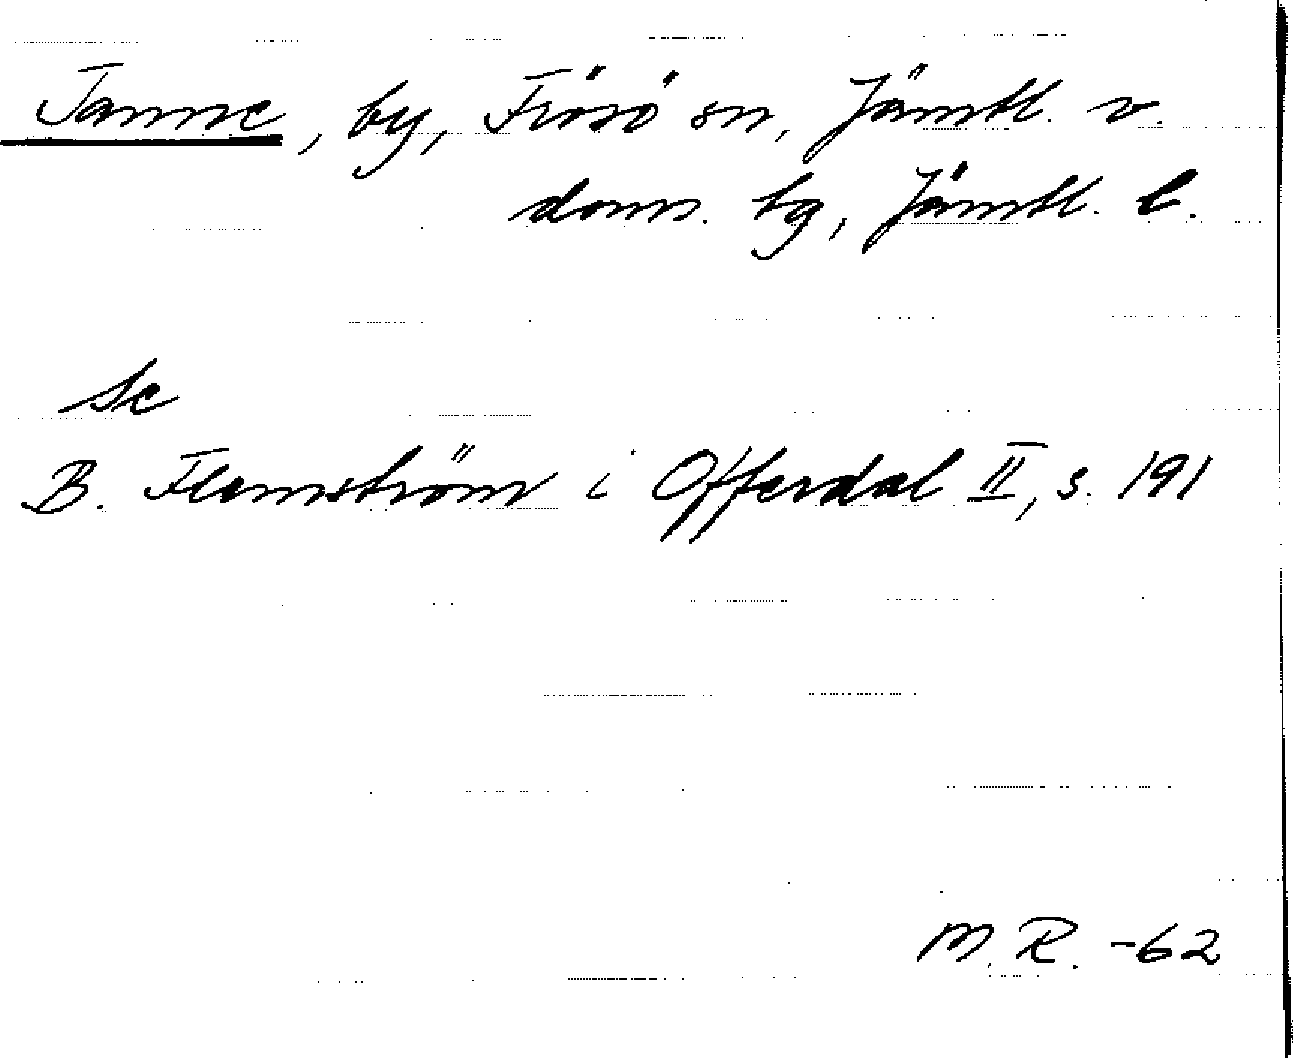 Tanne, by, Frösö sn, Jämtl. v.
doms. tg, Jämtl. l.
Se
B. Flemström i Offerdal II, s. 191
M. R. -62